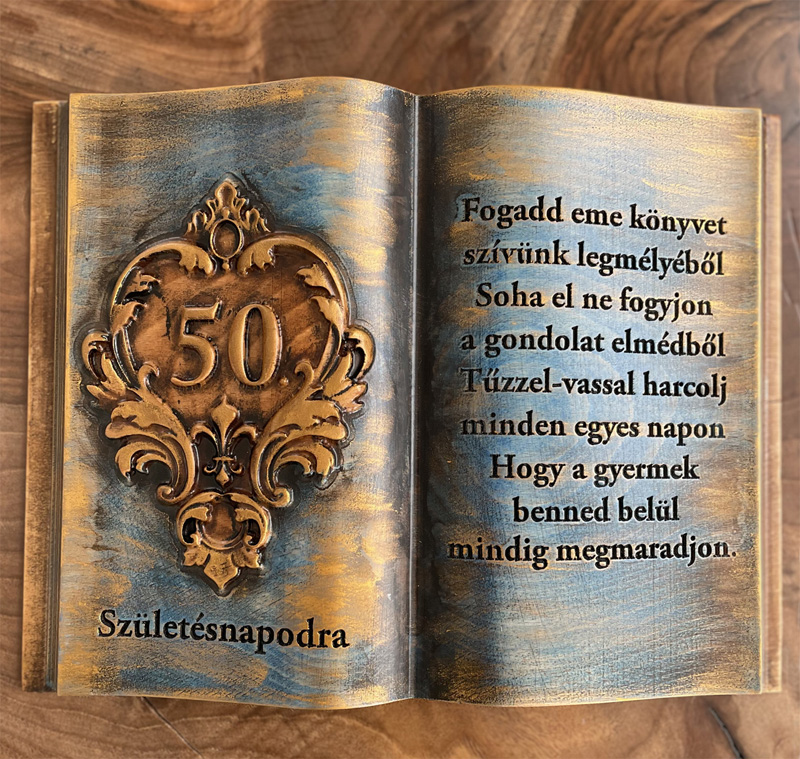 50.
Születésnapodra
Fogadd eme könyvet
szívünk legmélyéből
Soha el ne fogyjon
a gondolat elmédből
Tűzzel-vassal harcolj
minden egyes napon
Hogy a gyermek
benned belül
mindig megmaradjon.